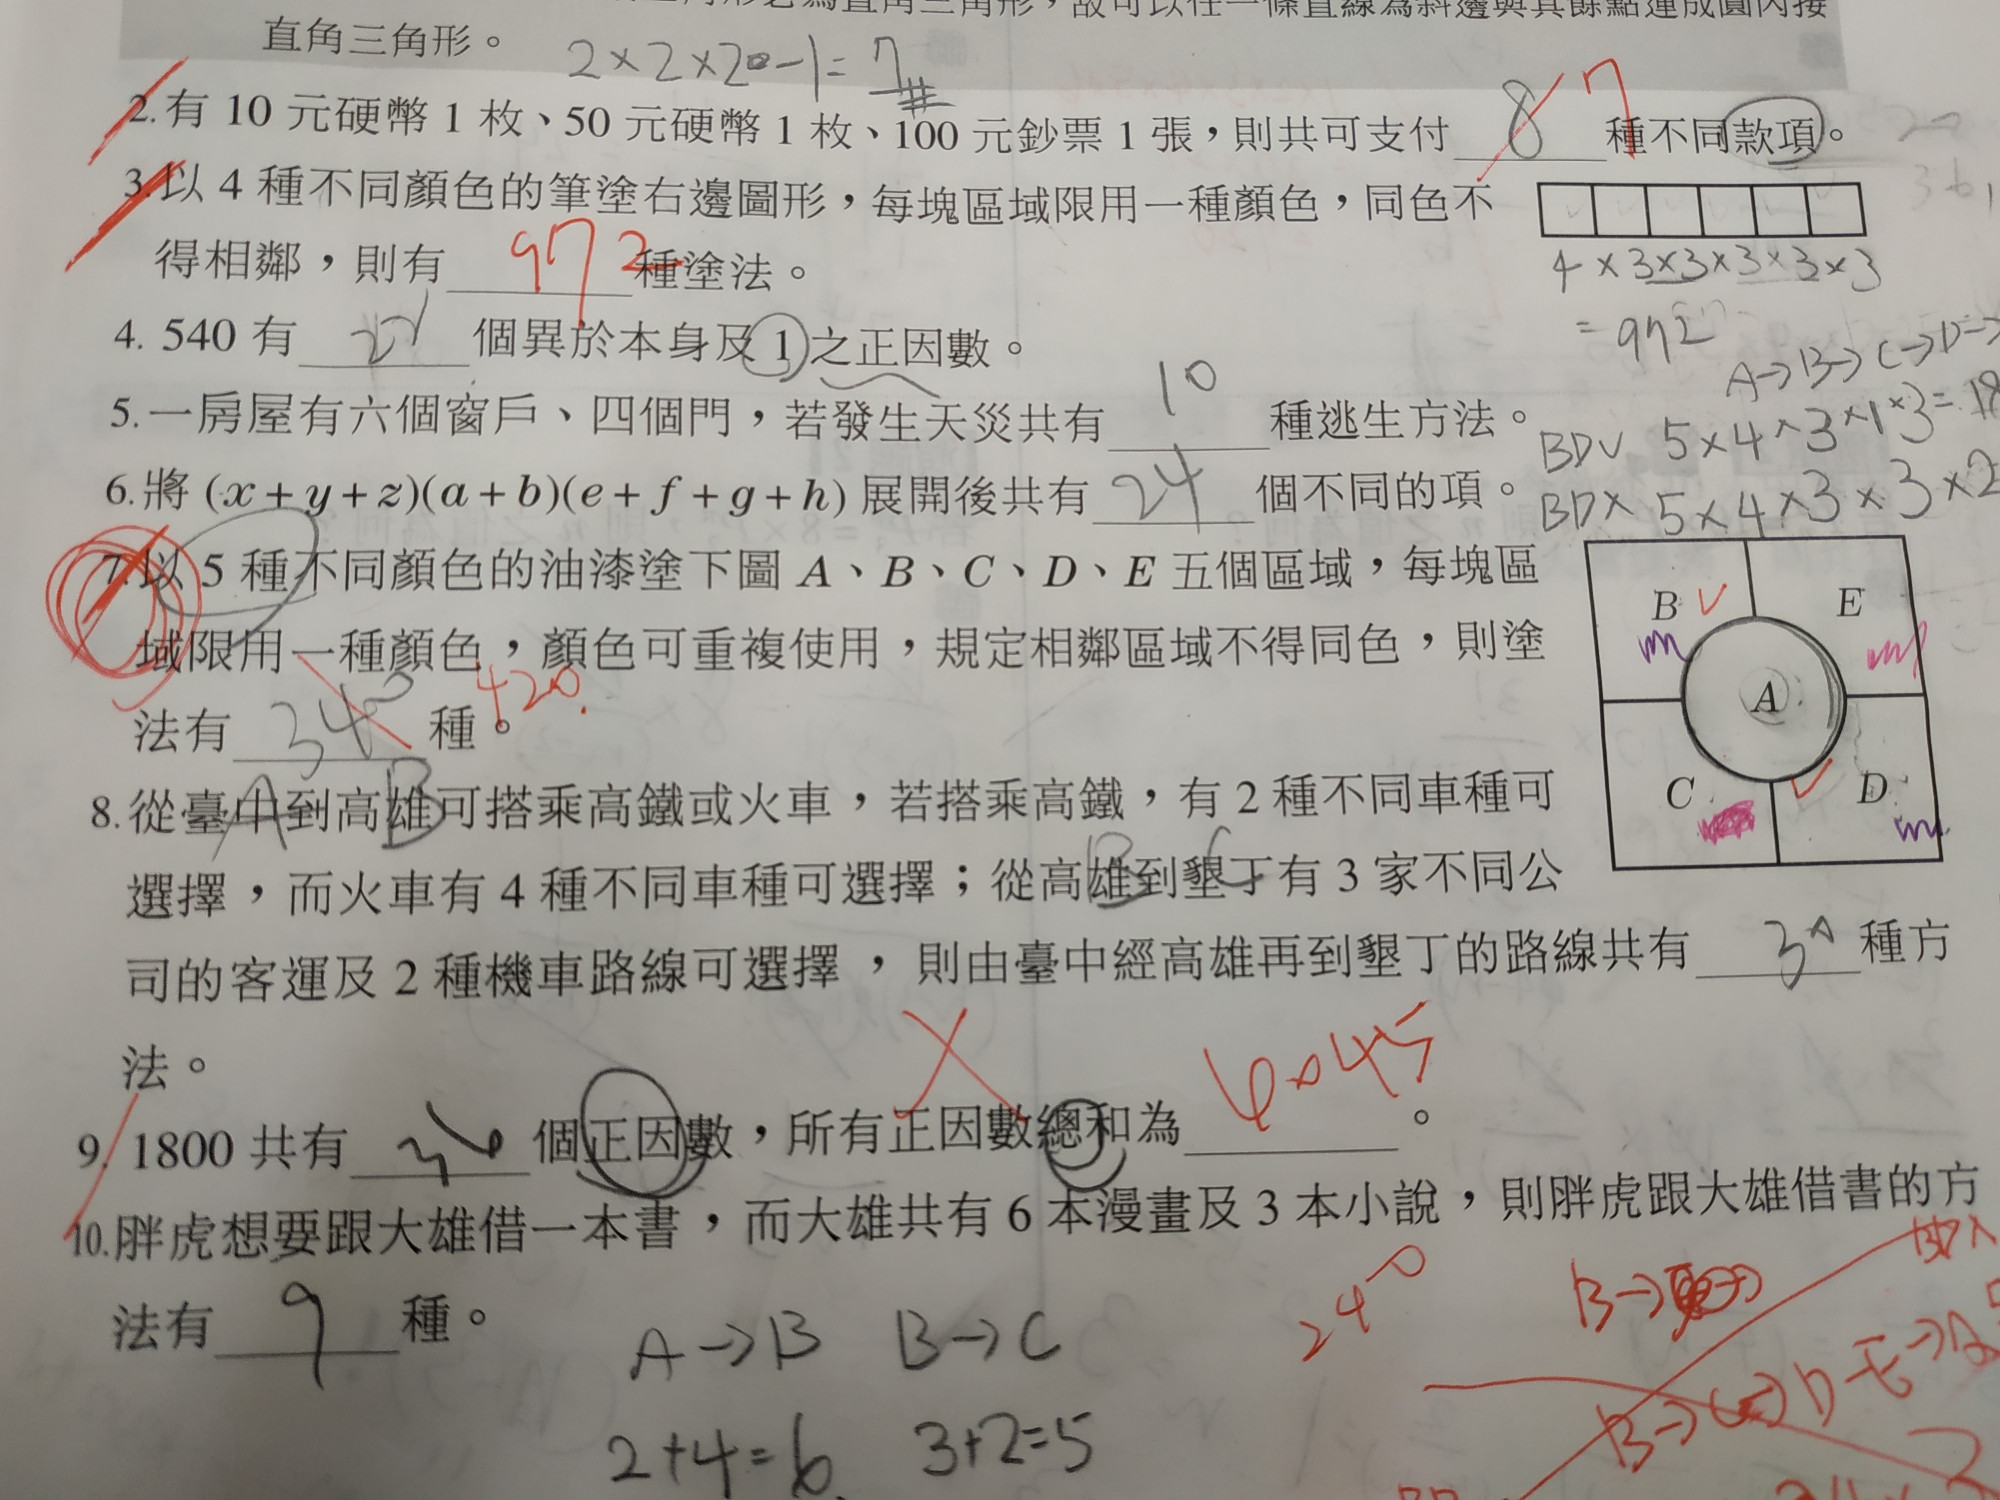 直角三角形。 2×2×2-1=7
2.有 10 元硬幣 1 枚、50 元硬幣 1 枚、100 元鈔票 1 張,則共可支付 8 7 種不同款項。
3.以 4 種不同顏色的筆塗右邊圖形,每塊區域限用一種顏色,同色不
得相鄰,則有 972 種塗法。
4×3×3×3×3×3
=972
4. 540 有 個異於本身及 1 之正因數。
5.一房屋有六個窗戶、四個門,若發生天災共有 10 種逃生方法。
A→B→C→D→
BDV 5×4×3×1×3=18
6.將 (x+y+z)(a+b)(e+f+g+h) 展開後共有 24 個不同的項。
BDX 5×4×3×3×2
7.以 5 種不同顏色的油漆塗下圖 A、B、C、D、E 五個區域,每塊區
域限用一種顏色,顏色可重複使用,規定相鄰區域不得同色,則塗
法有 340 種。 420
B E
A
C D
8.從臺中到高雄可搭乘高鐵或火車,若搭乘高鐵,有 2 種不同車種可
A B
選擇,而火車有 4 種不同車種可選擇;從高雄到墾丁有 3 家不同公
B C
司的客運及 2 種機車路線可選擇,則由臺中經高雄再到墾丁的路線共有 30 種方
法。
9. 1800 共有 36 個正因數,所有正因數總和為 6045 。
10.胖虎想要跟大雄借一本書,而大雄共有 6 本漫畫及 3 本小說,則胖虎跟大雄借書的方
法有 9 種。
A→B B→C
240
2+4=6 3+2=5